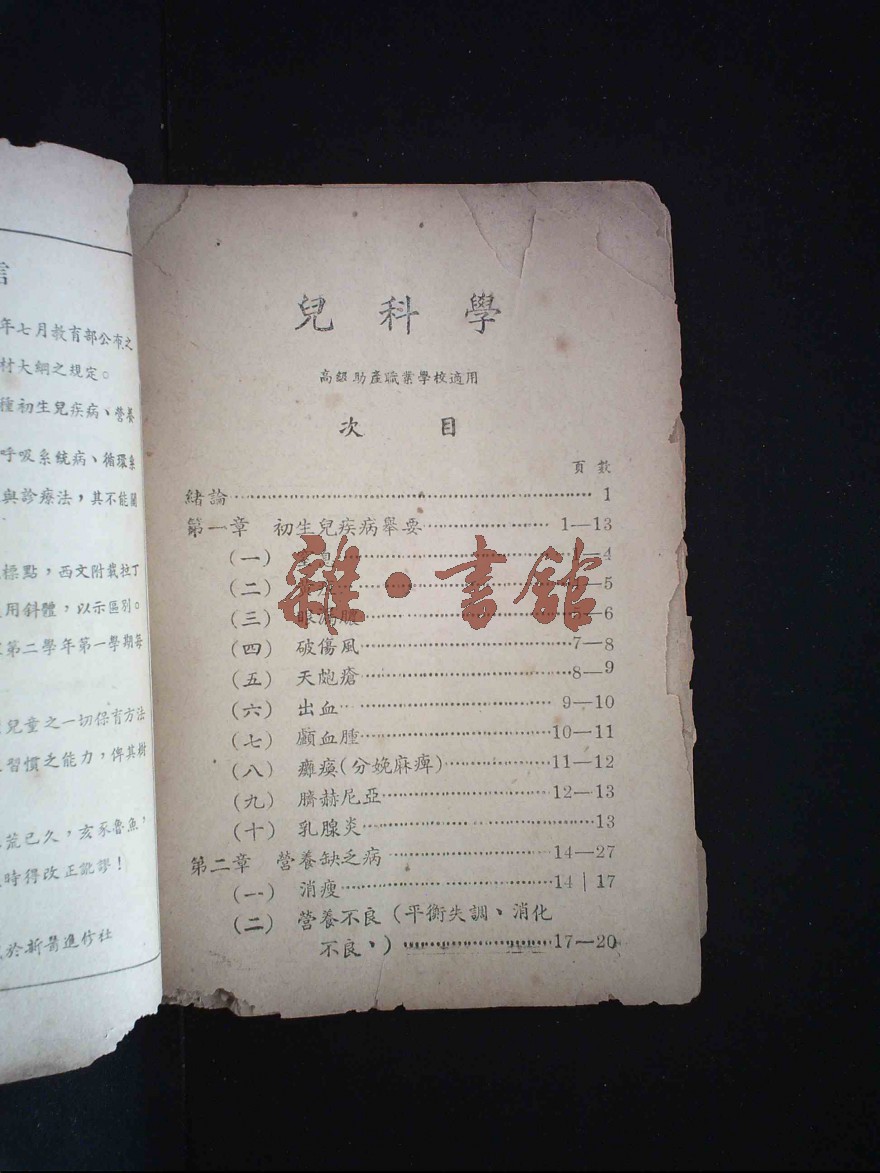 言
年七月教育部公布之
材大綱之規定。
種初生兒疾病、營養
呼吸系統病、循環系
與診療法,其不能關
標點,西文附載拉丁
用斜體,以示區別。
第二學年第一學期每
兒童之一切保育方法
習慣之能力,俾其樹
荒已久,亥豕魯魚,
時得改正訛謬!
於新醫進修社
兒科學
高級助產職業學校適用
次 目
頁數
緒論 1
第一章 初生兒疾病舉要 1—13
(一) 4
(二) 5
(三) 眼漏膿 6
(四) 破傷風 7—8
(五) 天皰瘡 8—9
(六) 出血 9—10
(七) 顱血腫 10—11
(八) 癱瘓(分娩麻痺) 11—12
(九) 臍赫尼亞 12—13
(十) 乳腺炎 13
第二章 營養缺乏病 14—27
(一) 消瘦 14|17
(二) 營養不良(平衡失調、消化
不良、) 17—20
雜·書館